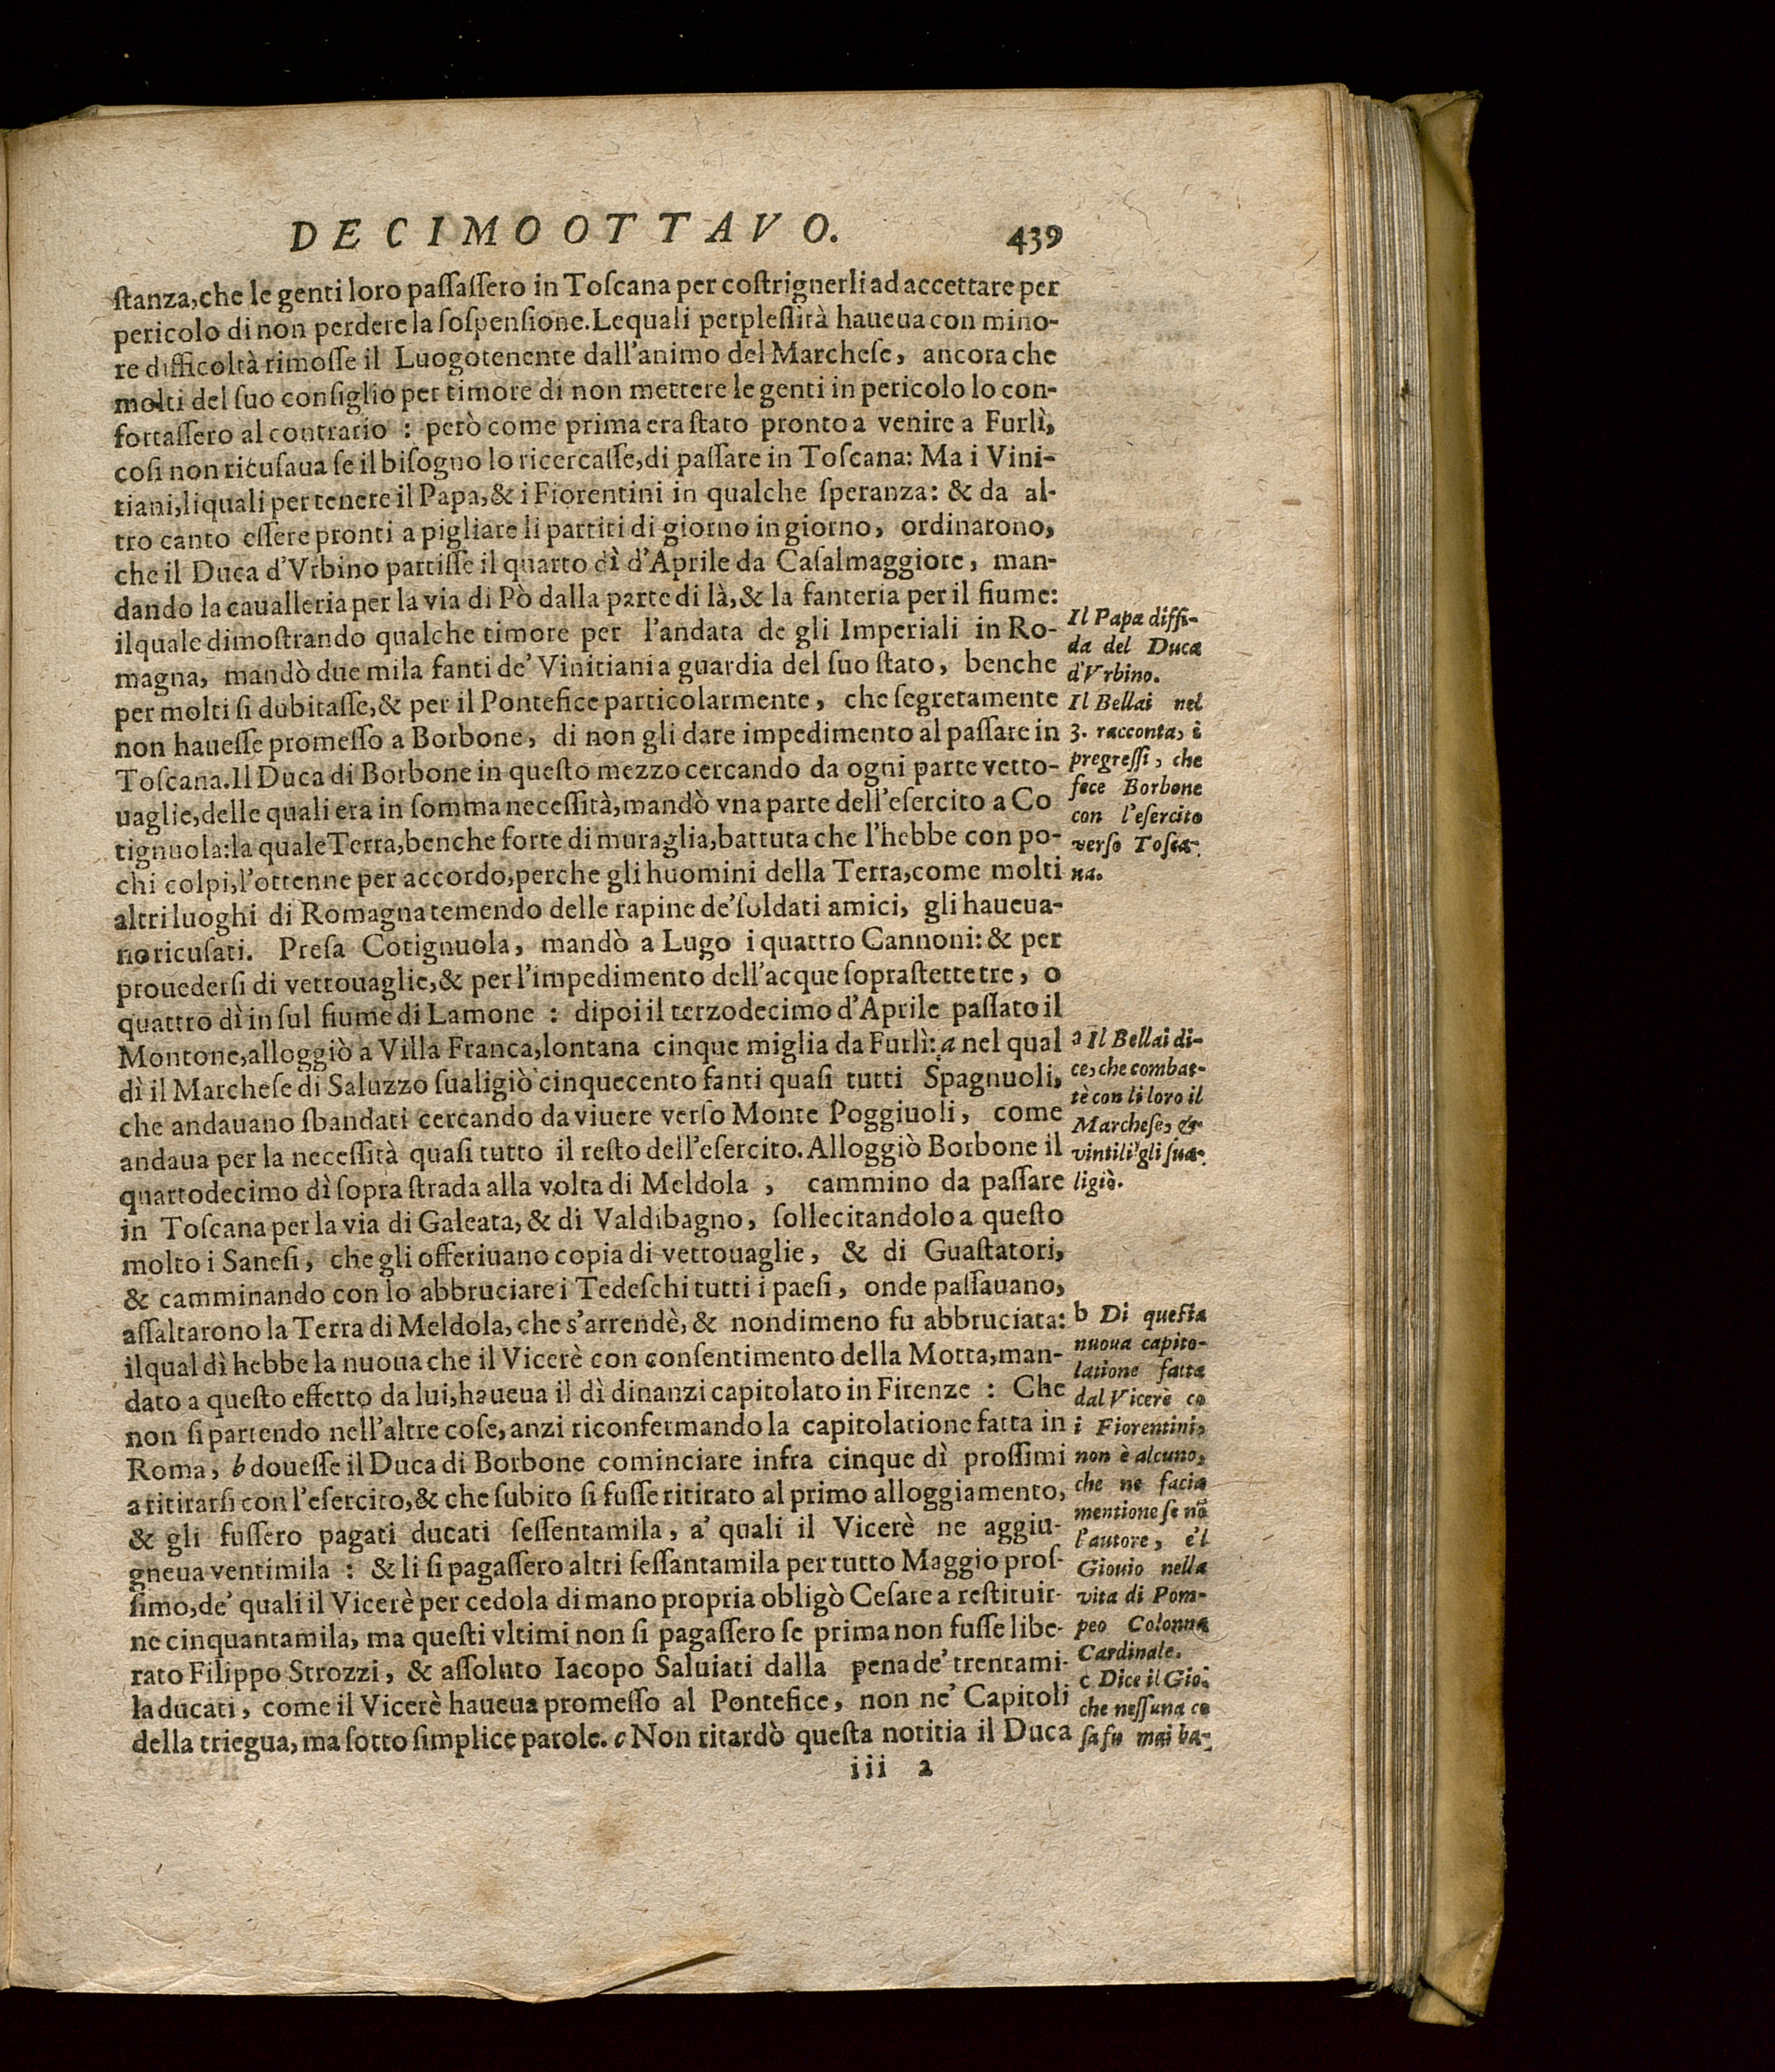 DECIMOOTTAVO. 439
ſtanza, che le genti loro paſſaſſero in Toſcana per coſtrignerli ad accettare per
pericolo di non perdere la ſoſpenſione. Lequali perpleſſità haueua con mino-
re difficoltà rimoſſe il Luogotenente dall'animo del Marcheſe, ancora che
molti del ſuo conſiglio per timore di non mettere le genti in pericolo lo con-
fortaſſero al contrario : però come prima era ſtato pronto a venire a Furlì,
coſi non ricuſaua ſe il biſogno lo ricercaſſe, di paſſare in Toſcana: Ma i Vini-
tiani, liquali per tenere il Papa, & i Fiorentini in qualche ſperanza: & da al-
tro canto eſſere pronti a pigliare li partiti di giorno in giorno, ordinarono,
che il Duca d'Vrbino partiſſe il quarto dì d'Aprile da Caſalmaggiore, man-
dando la caualleria per la via di Pò dalla parte di là, & la fanteria per il fiume:
ilquale dimoſtrando qualche timore per l'andata de gli Imperiali in Ro-
magna, mandò due mila fanti de' Vinitiani a guardia del ſuo ſtato, benche
per molti ſi dubitaſſe, & per il Pontefice particolarmente, che ſegretamente
non haueſſe promeſſo a Borbone, di non gli dare impedimento al paſſare in
Toſcana. Il Duca di Borbone in queſto mezzo cercando da ogni parte vetto-
uaglie, delle quali era in ſomma neceſſità, mandò vna parte dell'eſercito a Co
tignuola: la quale Terra, benche forte di muraglia, battuta che l'hebbe con po-
chi colpi, l'ottenne per accordo, perche gli huomini della Terra, come molti
altri luoghi di Romagna temendo delle rapine de' ſoldati amici, gli haueua-
no ricuſati. Preſa Cotignuola, mandò a Lugo i quattro Cannoni: & per
prouederſi di vettouaglie, & per l'impedimento dell'acque ſopraſtette tre, o
quattro dì in ſul fiume di Lamone : dipoi il terzodecimo d'Aprile paſſato il
Montone, alloggiò a Villa Franca, lontana cinque miglia da Furlì: a nel qual
dì il Marcheſe di Saluzzo ſualigiò cinquecento fanti quaſi tutti Spagnuoli,
che andauano sbandati cercando da viuere verſo Monte Poggiuoli, come
andaua per la neceſſità quaſi tutto il reſto dell'eſercito. Alloggiò Borbone il
quartodecimo dì ſopra ſtrada alla volta di Meldola, cammino da paſſare
in Toſcana per la via di Galeata, & di Valdibagno, ſollecitandolo a queſto
molto i Saneſi, che gli offeriuano copia di vettouaglie, & di Guaſtatori,
& camminando con lo abbruciare i Tedeſchi tutti i paeſi, onde paſſauano,
aſſaltarono la Terra di Meldola, che s'arrendè, & nondimeno fu abbruciata:
ilqual dì hebbe la nuoua che il Vicerè con conſentimento della Motta, man-
dato a queſto effetto da lui, haueua il dì dinanzi capitolato in Firenze : Che
non ſi partendo nell'altre coſe, anzi riconfermando la capitolatione fatta in
Roma, b doueſſe il Duca di Borbone cominciare infra cinque dì proſſimi
a ritirarſi con l'eſercito, & che ſubito ſi fuſſe ritirato al primo alloggiamento,
& gli fuſſero pagati ducati ſeſſentamila, a' quali il Vicerè ne aggiu-
gneua ventimila : & li ſi pagaſſero altri ſeſſantamila per tutto Maggio proſ-
ſimo, de' quali il Vicerè per cedola di mano propria obligò Ceſare a reſtituir-
ne cinquantamila, ma queſti vltimi non ſi pagaſſero ſe prima non fuſſe libe-
rato Filippo Strozzi, & aſſoluto Iacopo Saluiati dalla pena de' trentami-
la ducati, come il Vicerè haueua promeſſo al Pontefice, non ne' Capitoli
della triegua, ma ſotto ſimplice parole. c Non ritardò queſta notitia il Duca
iii 2
Il Papa diffi-
da del Duca
d'Vrbino.
Il Bellai nel
3. racconta, i
pregreſſi, che
fece Borbone
con l'eſercito
verſo Toſca-
na.
a Il Bellai di-
ce, che combat-
tè con li loro il
Marcheſe, &
vintili gli ſua-
ligiò.
b Di queſta
nuoua capito-
latione fatta
dal Vicerè cō
i Fiorentini,
non è alcuno,
che ne facia
mentione ſe nō
l'autore, e'l
Giouio nella
vita di Pom-
peo Colonna
Cardinale.
c Dice il Gio.
che neſſuna co
ſa fu mai ba-